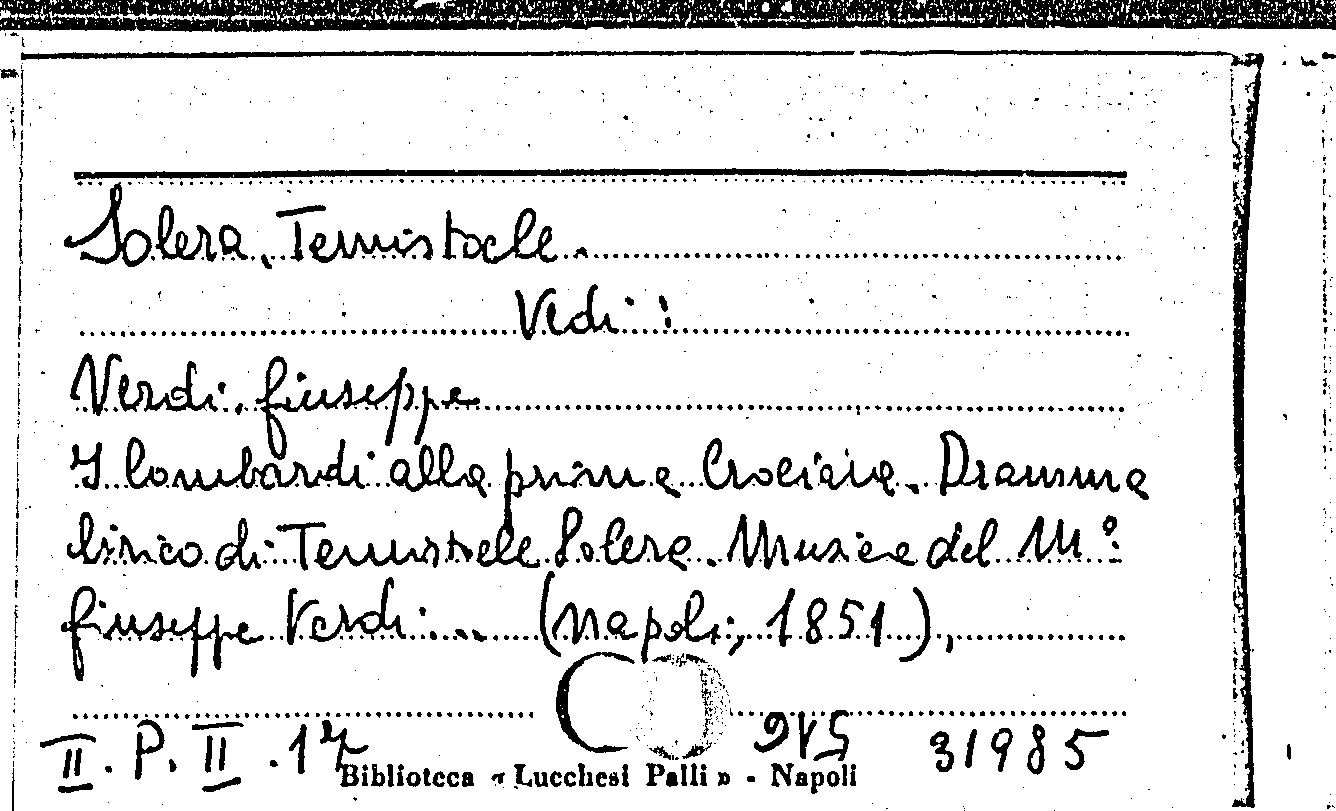 Solera, Temistocle.
Vedi:
Verdi, Giuseppe
I Lombardi alla prima Crociata. Dramma
lirico di Temistocle Solera. Musica del M.º
Giuseppe Verdi... (Napoli, 1851),
II. P. II. 17 31985
Biblioteca « Lucchesi Palli » - Napoli